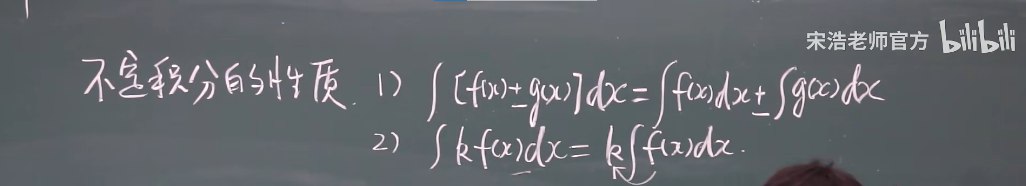 宋浩老师官方 bilibili
不定积分的性质. 1) ∫[f(x)±g(x)]dx=∫f(x)dx±∫g(x)dx
2) ∫kf(x)dx=k∫f(x)dx.